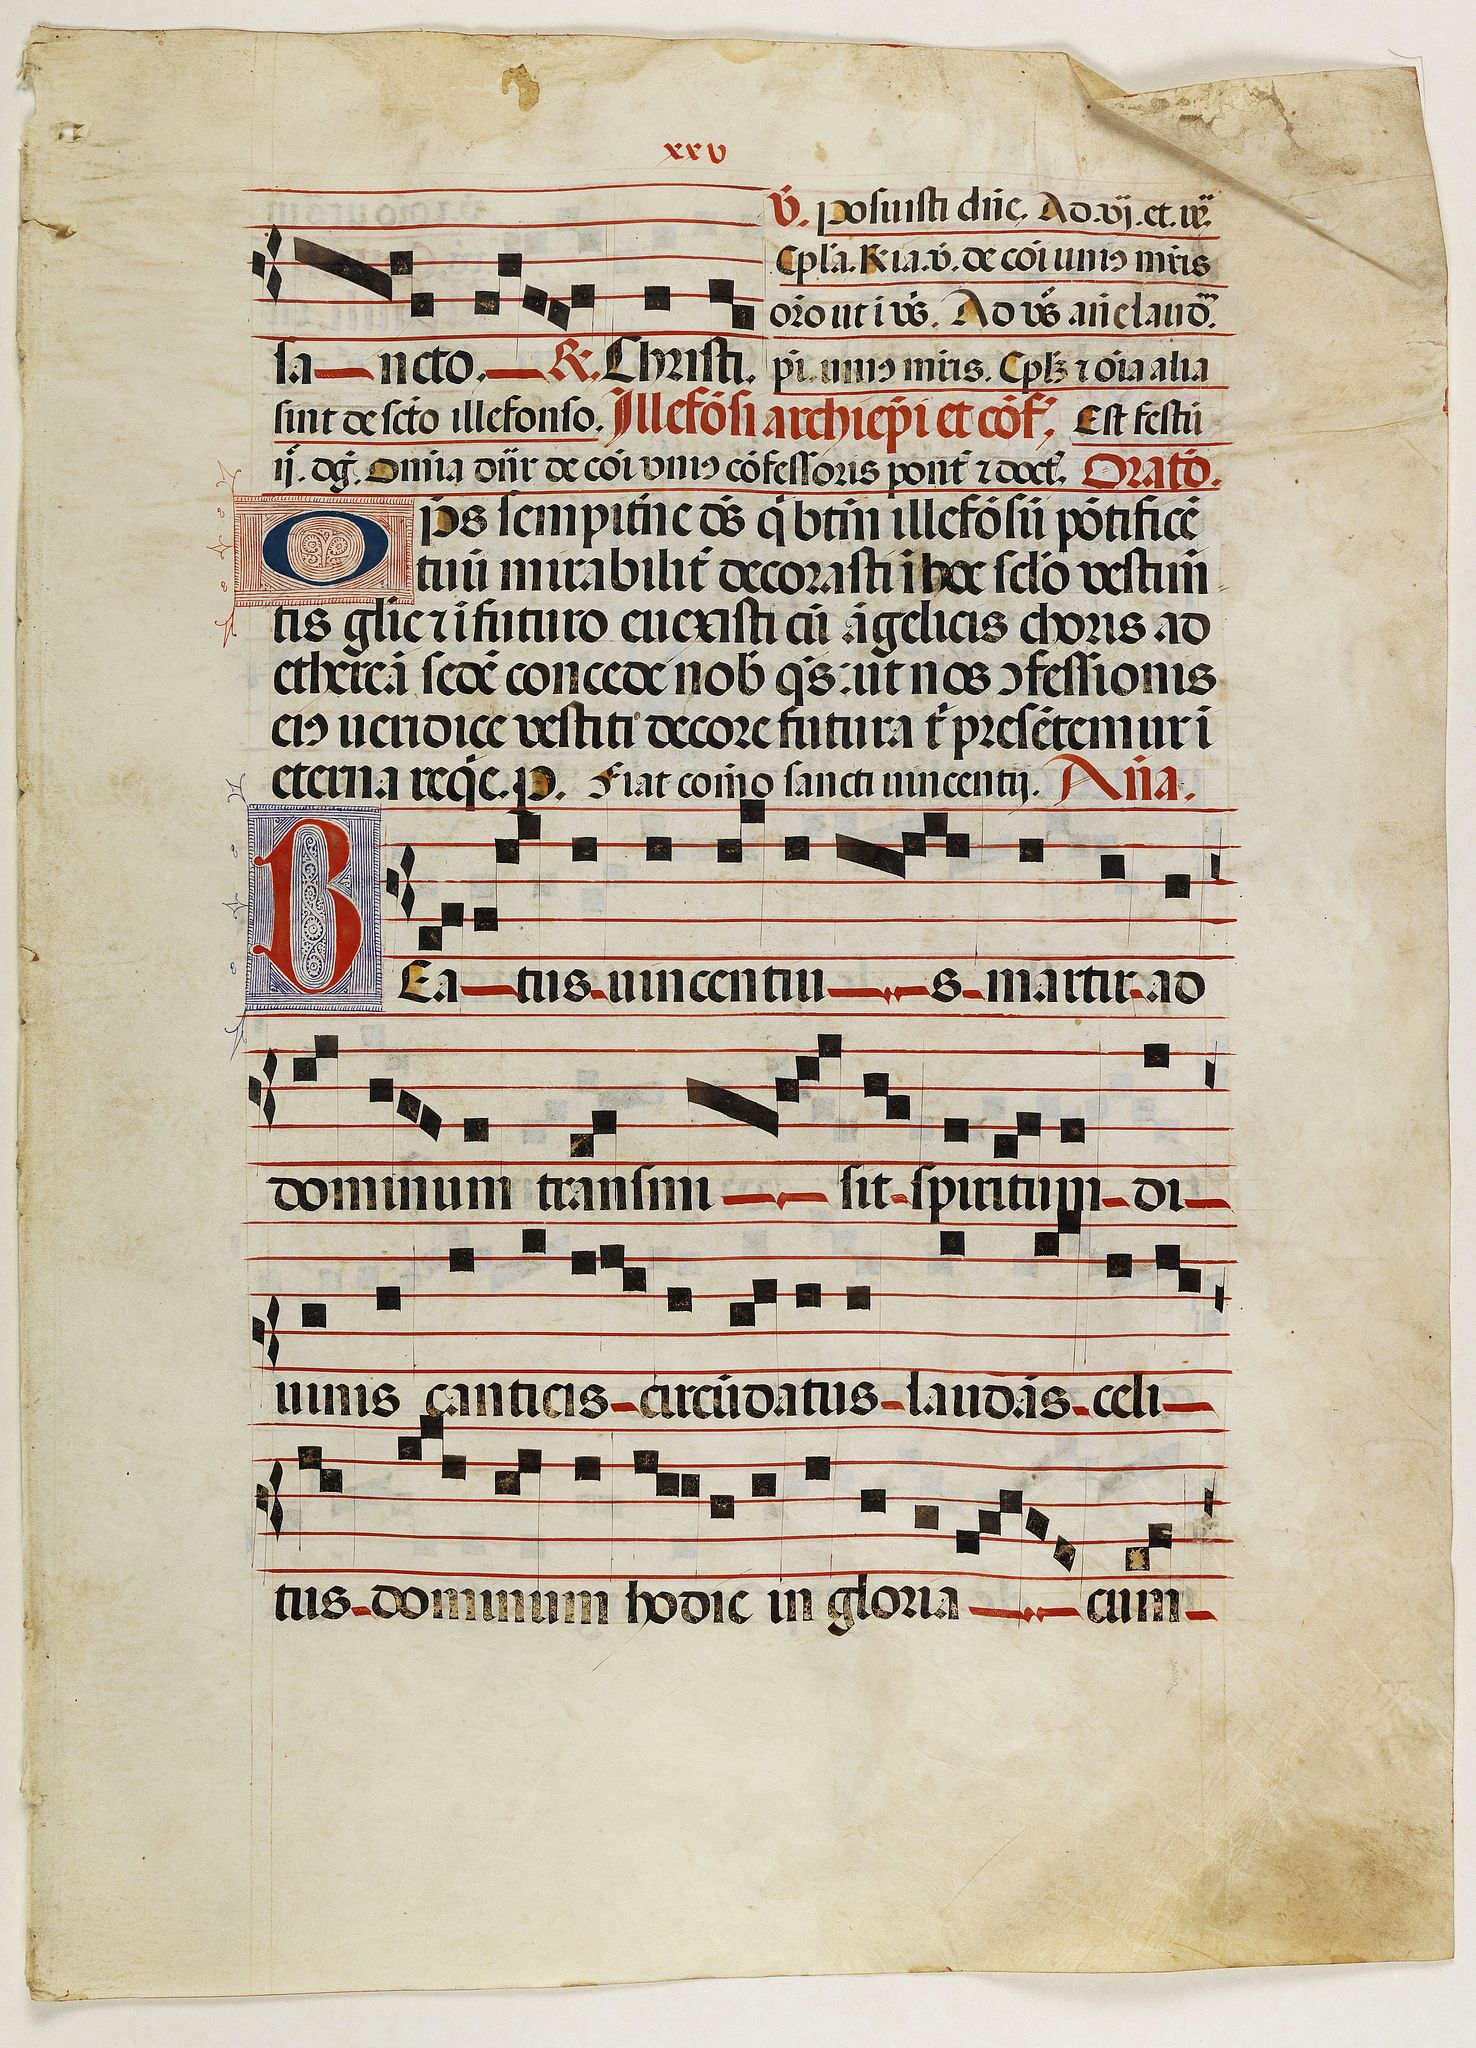 xxv
sa ncto. R. Christi.
V. posuisti dñe. Ad vj. et. ix.
Cpl'a. R ia. v. de cõi uniꝰ mr̃is
oro ut i vs̃. Ad vs̃ añe laud'.
pi. uniꝰ mr̃is. Cpl' ⁊ oĩa alia
sint de scto illefonso. Illefõsi archiep̃i et cõf'. Est festũ
ij. dg̃. Omĩa dñr de cõi uniꝰ cõfessoris pont' ⁊ doct'. Oratõ.
Oĩps sempit'ne ds̃ q̃ btm̃ illefõsũ põtificẽ
tuũ mirabilit' decorasti ĩ hoc sclo vestim̃
tis gl'ie ⁊ i futuro euexisti cũ ãgelicis choris ad
ethereã sedẽ concede nob̃ qs̃: ut nos ꝯfessionis
eiꝰ ueridice vestiti decore futura t' presẽtemur i
eterna reqe. p. Fiat com̃o sancti uincentij. Aña.
BEa tus uincentiu s martir ad
dominum transmi sit spiritum di
uinis canticis circũdatus laudãs celi
tus dominum hodie in gloria cum